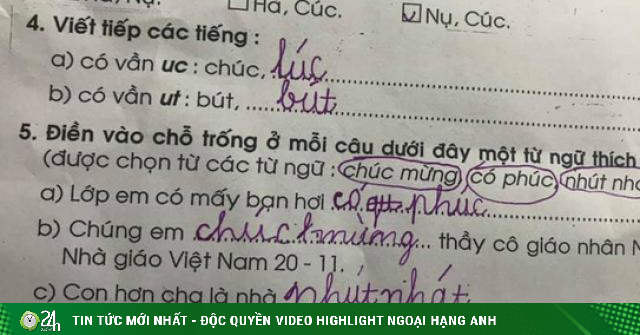 Hà, Cúc. Nụ, Cúc.
4. Viết tiếp các tiếng :
a) có vần uc : chúc, lúc
b) có vần ut : bút, bút
5. Điền vào chỗ trống ở mỗi câu dưới đây một từ ngữ thích
(được chọn từ các từ ngữ : chúc mừng, có phúc, nhút nhá
a) Lớp em có mấy bạn hơi có phúc
b) Chúng em chúc mừng... thầy cô giáo nhân N
Nhà giáo Việt Nam 20 - 11.
c) Con hơn cha là nhà nhút nhát
24h TIN TỨC MỚI NHẤT - ĐỘC QUYỀN VIDEO HIGHLIGHT NGOẠI HẠNG ANH